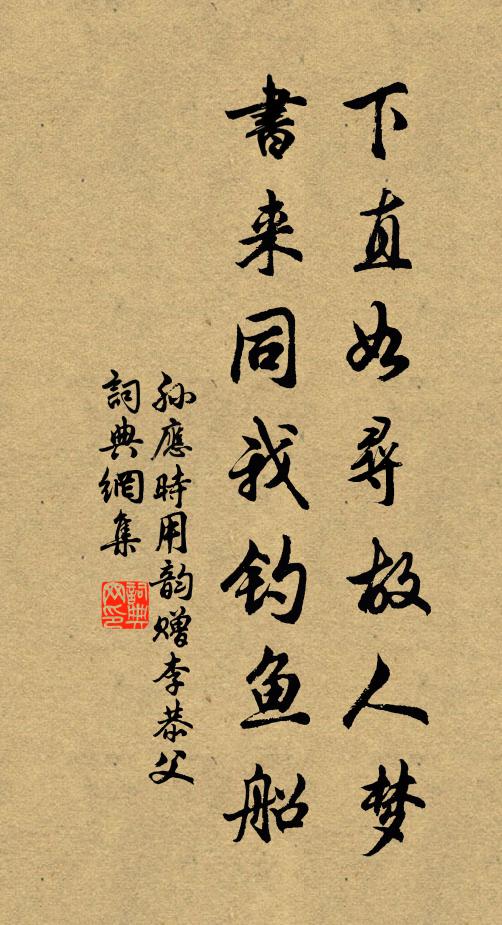 下直如尋故人梦
書来同我钓鱼船
孙應時用韵赠李恭父
詞典網集
詞典網印